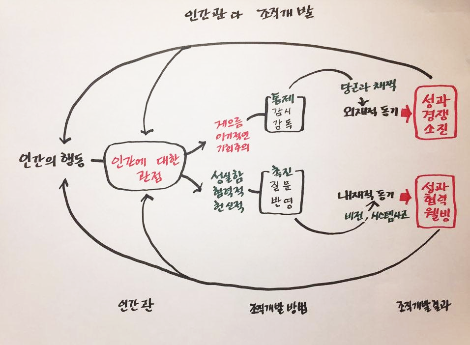 인간관과 조직개발
당근과 채찍
외재적 동기
통제
감시
감독
성과
경쟁
소진
게으름
이기적인
기회주의
인간의 행동
인간에 대한
관점
성실함
협력적
헌신적
촉진
질문
반영
내재적 동기
비전, 시스템사고
성과
협력
웰빙
인간관
조직개발 방법
조직개발 결과